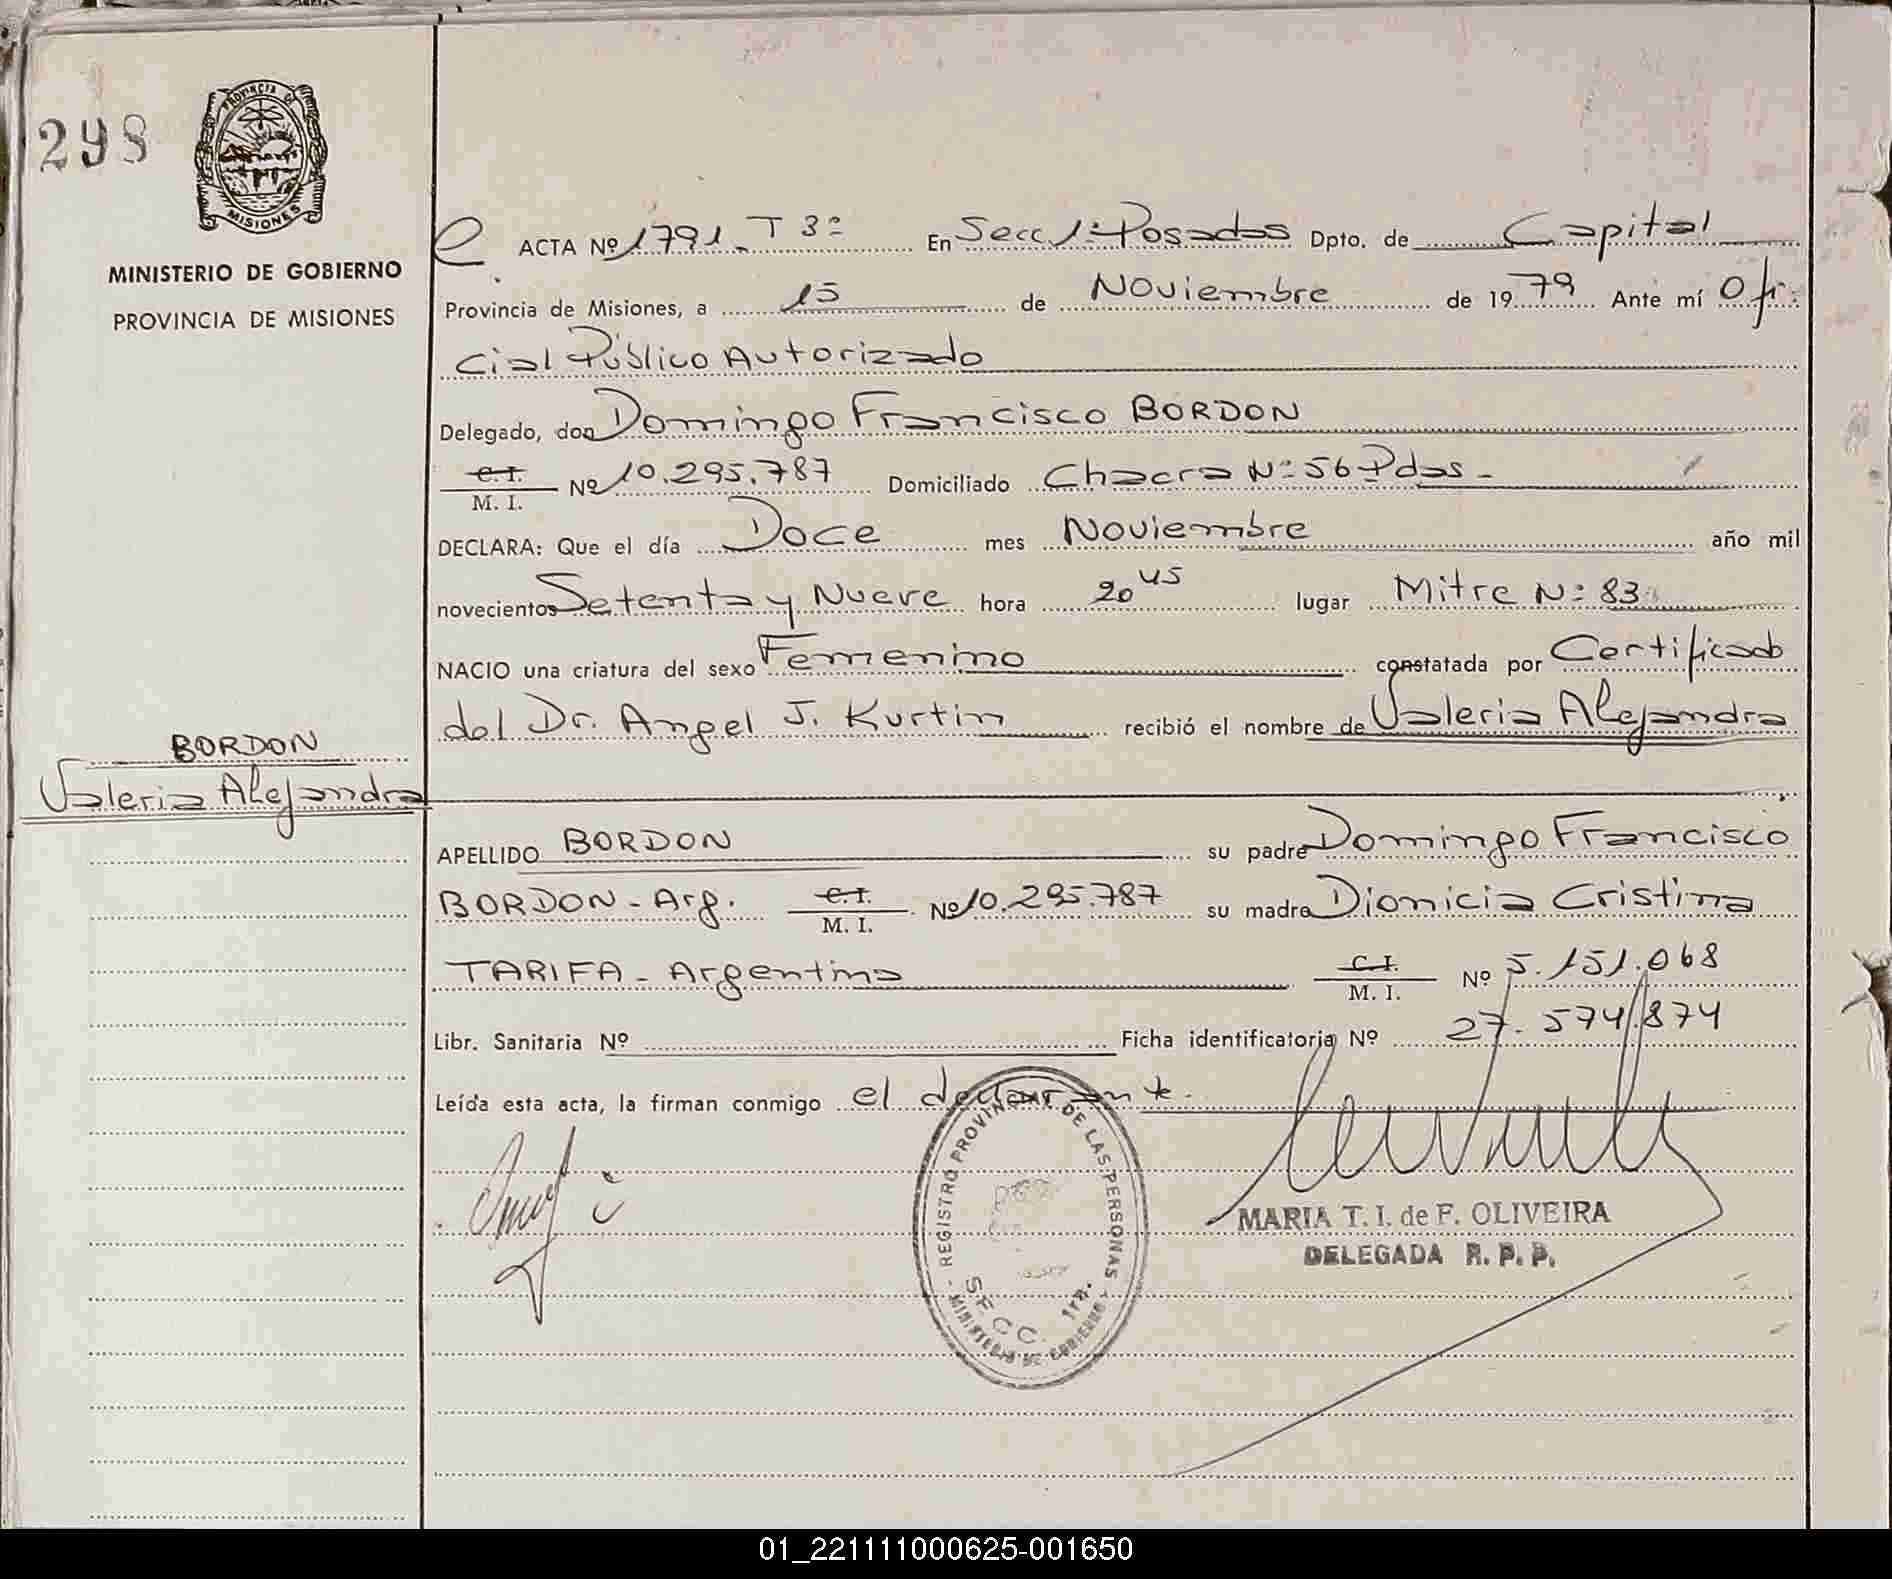 298
PROVINCIA DE
MISIONES
MINISTERIO DE GOBIERNO
PROVINCIA DE MISIONES
BORDON
Valeria Alejandra
ACTA Nº 1791. T 3º En Secc 1º Posadas Dpto. de Capital
Provincia de Misiones, a 15 de Noviembre de 1979 Ante mí Ofi
cial Público Autorizado
Delegado, don Domingo Francisco BORDON
C.I.
M. I. Nº 10.295.787 Domiciliado Chacra Nº 56 Pdas -
DECLARA: Que el día Doce mes Noviembre año mil
novecientos Setenta y Nueve hora 20 45 lugar Mitre Nº 83
NACIO una criatura del sexo Femenino constatada por Certificado
del Dr. Angel J. Kurtin recibió el nombre de Valeria Alejandra
APELLIDO BORDON su padre Domingo Francisco
BORDON - Arg. C.I. M. I. Nº 10.295.787 su madre Dionicia Cristina
TARIFA - Argentina C.I. M. I. Nº 5.151.068
Libr. Sanitaria Nº Ficha identificatoria Nº 27.574.874
Leída esta acta, la firman conmigo el declarante.
REGISTRO PROVINCIAL DE LAS PERSONAS
S.F.C.C. 1ra.
MINISTERIO DE GOBIERNO
MARIA T. I. de F. OLIVEIRA
DELEGADA R. P. P.
01_221111000625-001650